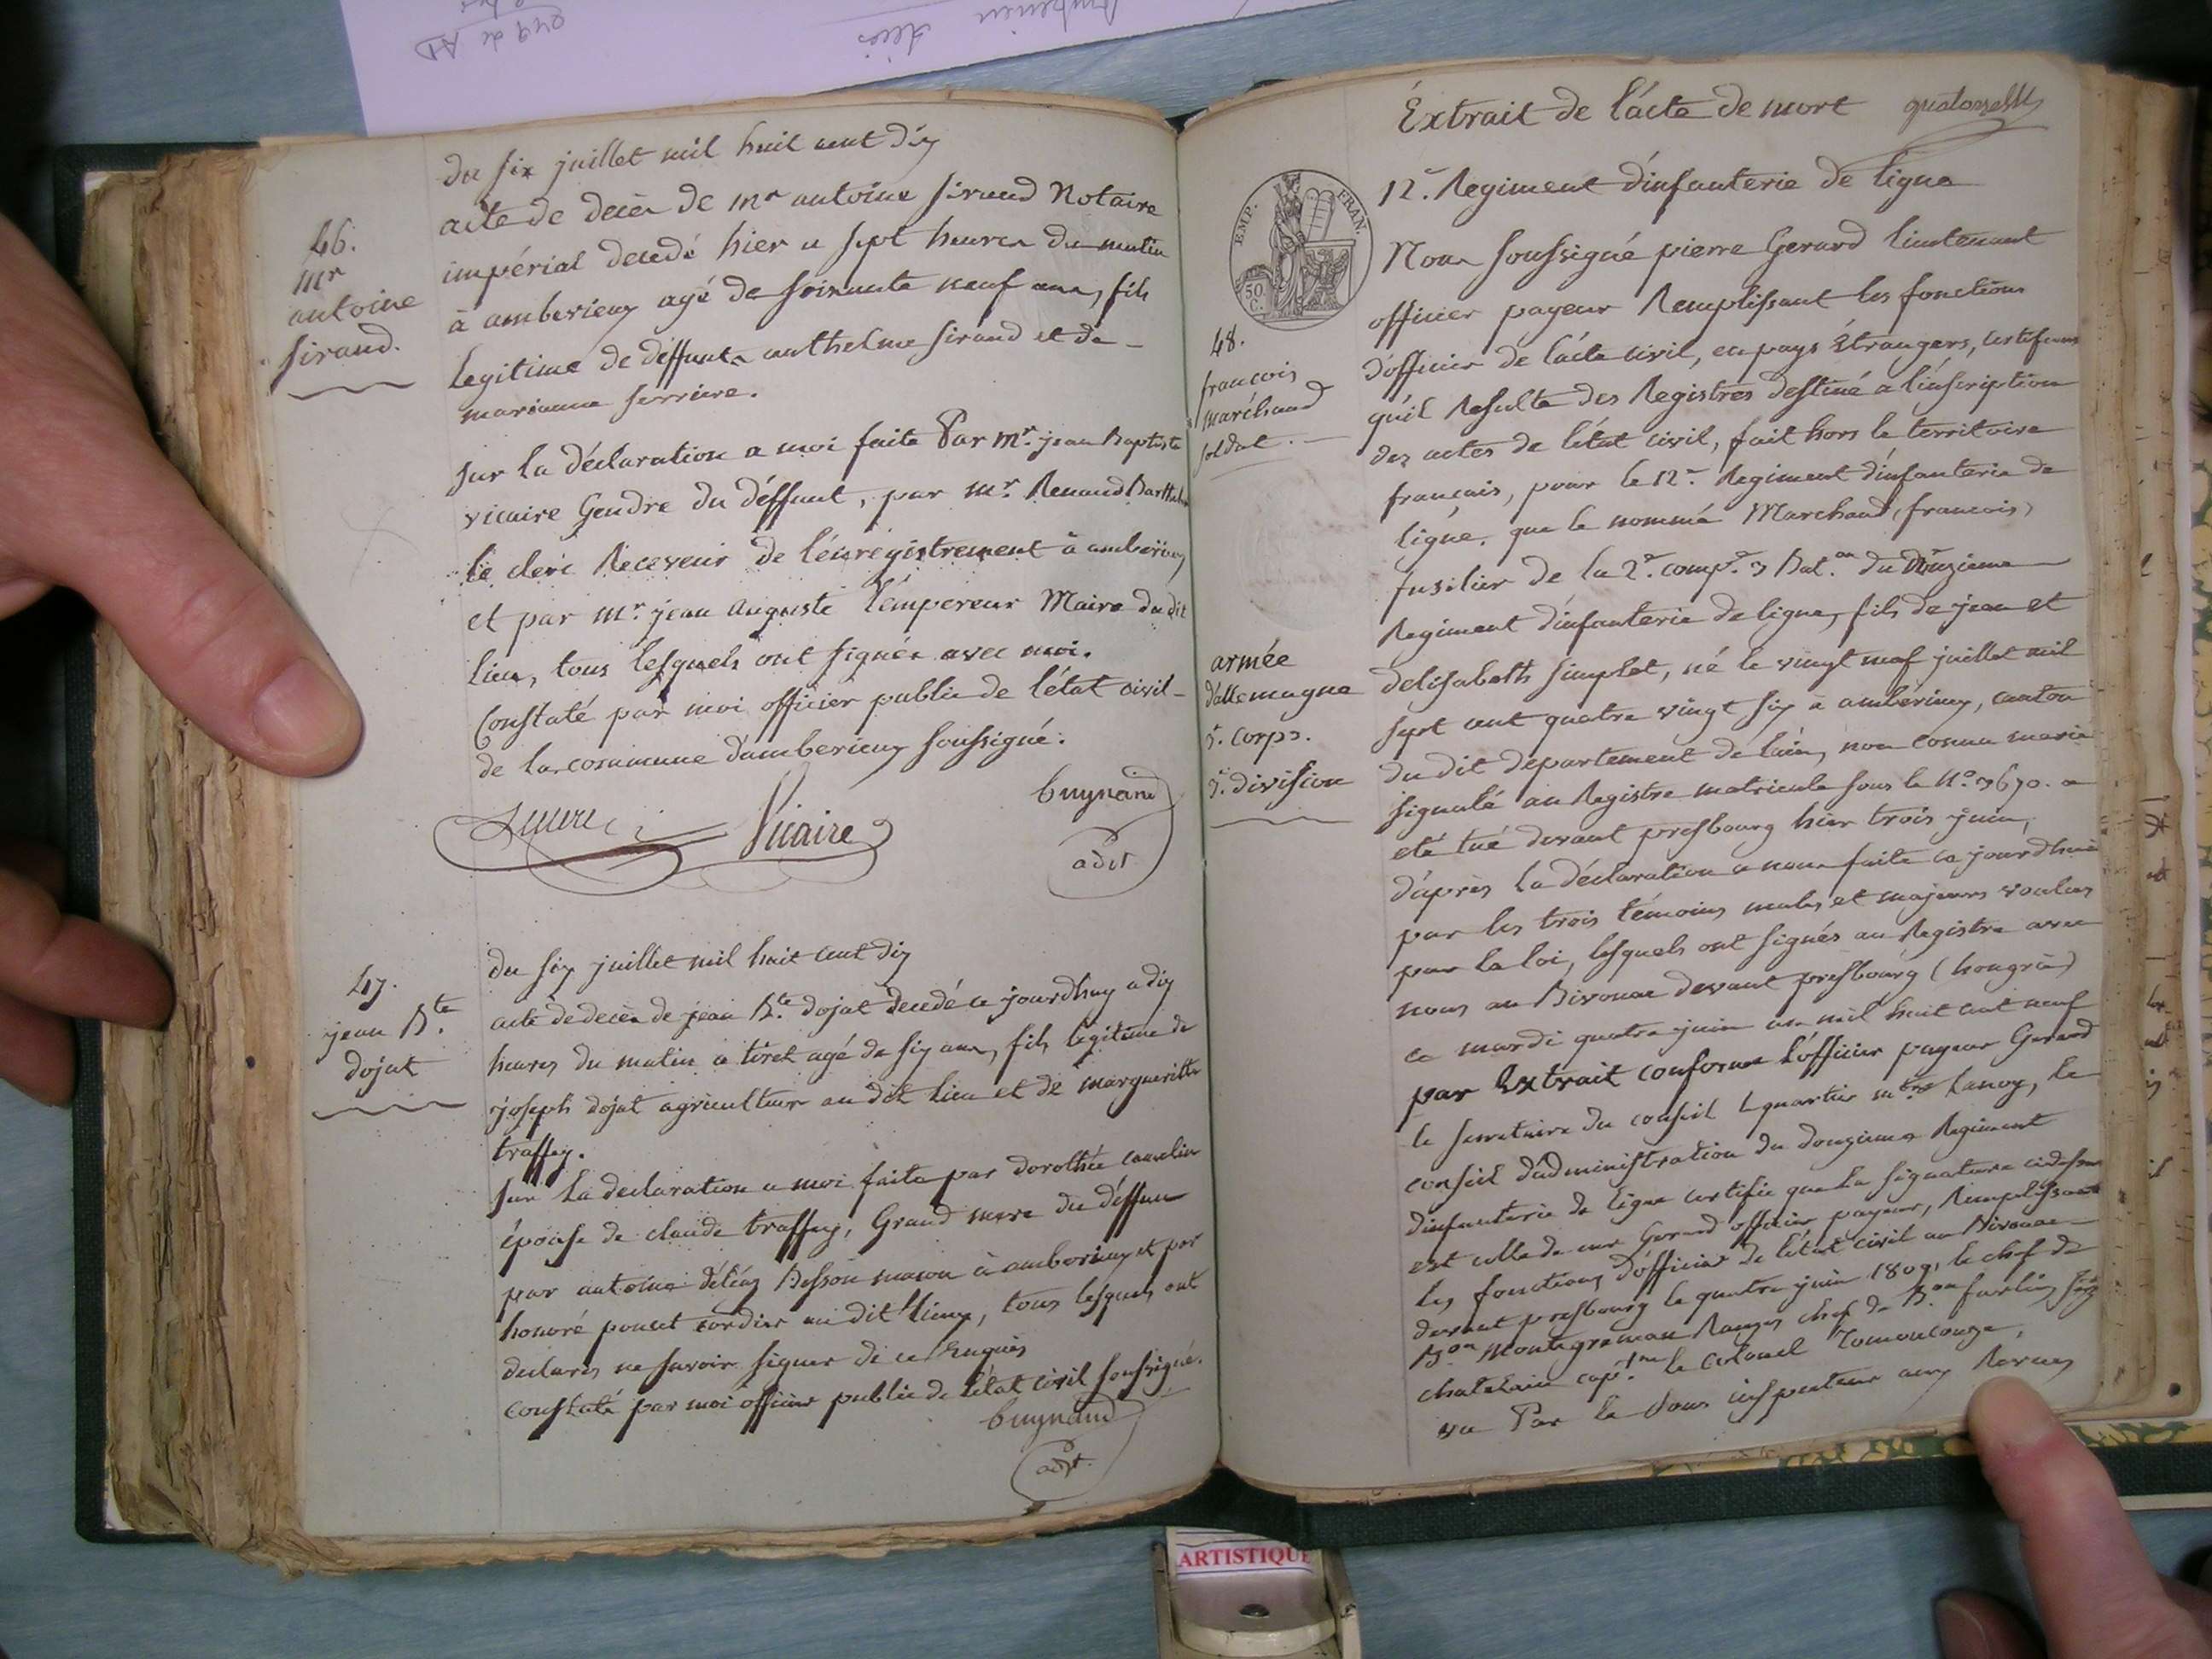 du six juillet mil huit cent dix
46.
mr
antoine
sirand.
acte de decès de mr antoine sirand Notaire
impérial decedé hier a sept heures du matin
à amberieux agé de soixante neuf ans, fils
legitime de deffunts anthelme sirand et de
marianne serriere.
sur la déclaration a moi faite Par mr. jean Baptiste
vicaire Gendre du déffunt, par mr. Renaud
le clerc Receveur de l'énregistrement à amberieux
et par mr. jean auguste l'émpereur Maire du dit
lieu, tous lesquels ont signés avec moi.
Constaté par moi officier public de l'état civil
de la commune d'amberieux soussigné.
Vicaire
buynand
adjt
47.
jean Bte.
dojat
du six juillet mil huit cent dix
acte de decès de jean Bte. dojat decedé ce jourdhuy a dix
heures du matin a tiret agé de six ans, fils legitime de
joseph dojat agriculteur au dit lieu et de margueritte
traffay.
sur la declaration a moi faite par dorothée
épouse de claude traffay, Grand mere du déffunt
par antoine Besson maçon à amberieux et par
honoré poncet cordier au dit lieux, tous lesquels ont
declarés ne savoir signer de ce Enquis
constaté par moi officier public de l'état civil soussigné.
buynand
adjt.
Éxtrait de l'acte de mort
12e. Regiment d'infanterie de ligne
EMP. FRAN.
50 C.
48.
francois
maréchand
soldat.
armée
d'allemagne
3e. corps.
3e. division
Nous soussigné pierre Gerard lieutenant
officier payeur Remplissant les fonctions
d'officier de l'acte civil, en pays Étrangers, certifions
qu'il Resulte des Registres destiné a l'inscription
des actes de l'état civil, fait hors le territoire
français, pour le 12e. Regiment d'infanterie de
ligne, que le nommé Marchand (francois)
fusilier de la 2e. compe. 3 Bat.on du Douzieme
Regiment d'infanterie de ligne, fils de jean et
délisabeth simplet, né le vingt neuf juillet mil
sept cent quatre vingt six à amberieux, canton
du dit département de lain, non connu marié
signalé au Registre matricule sous le No. 3670. a
eté tué devant presbourg hier trois juin,
d'aprés la déclaration a nous faite ce jourdhui
par les trois témoins males et majeurs voulus
par la loi, lesquels ont signés au Registre avec
nous au Bivouac devant presbourg (hongrie)
ce mardi quatre juin an mil huit cent neuf
par Extrait conforme l'officier payeur Gerard
le secretaire du conseil quartier mtre Lanoy, le
conseil d'administration du douzieme Regiment
d'infanterie de ligne certifie que la signature cidessus
est celle de mr Gerard officier payeur, Remplissant
les fonctions d'officier de l'état civil au Bivouac
devant presbourg le quatre juin 1809, le chef de
Bon Montagreman chef de Bon
chatelain cap.ne le colonel
vu Par le sous inspecteur aux Revues
ARTISTIQUE